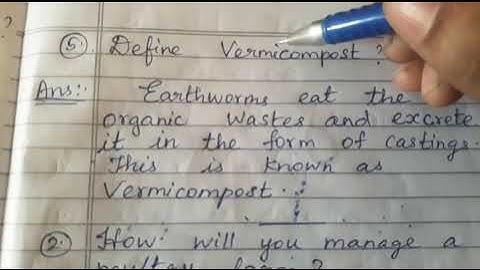 ?
⑤. Define Vermicompost?
Ans:. Earthworms eat the
organic wastes and excrete
it in the form of castings.
This is known as
Vermicompost.
②. How will you manage a
poultry farm?